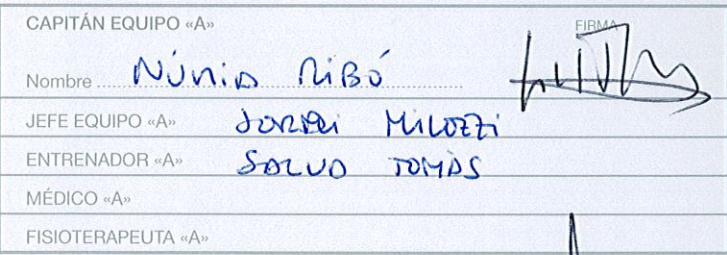 CAPITÁN EQUIPO «A»
FIRMA
Nombre Núria Ribó
JEFE EQUIPO «A» JORDI MILOZZI
ENTRENADOR «A» SALVO TOMÁS
MÉDICO «A»
FISIOTERAPEUTA «A»